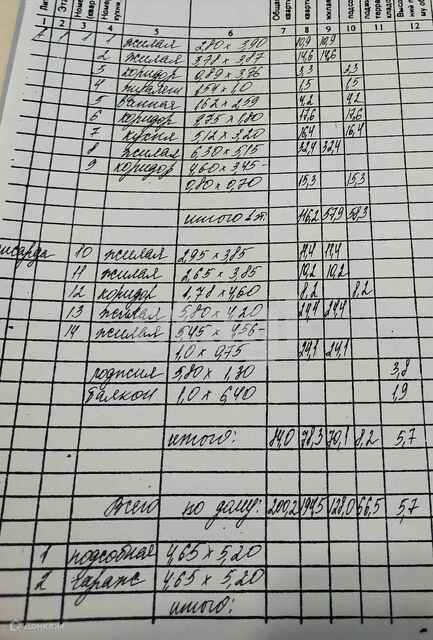 1 2 3 4 5 6 7 8 9 10 11 12
1 1 1 жилая 2,80 x 3,90 10,9 10,9
2 жилая 3,78 x 3,87 14,6 14,6
3 коридор 0,89 x 3,76 3,3 3,3
4 1,5 1,5
5 ванная 1,62 x 2,59 4,2 4,2
6 коридор 17,6 17,6
7 кухня 5,12 x 3,20 16,4 16,4
8 жилая 6,30 x 5,15 32,4 32,4
9 коридор 4,60 x 3,45 -
0,80 x 0,70 15,3 15,3
итого 1 эт. 116,2 57,9 58,3
10 жилая 2,95 x 3,85 11,4 11,4
11 жилая 2,65 x 3,85 10,2 10,2
12 коридор 1,78 x 4,60 8,2 8,2
13 жилая 5,80 x 4,20 24,4 24,4
14 жилая 5,45 x 4,56 -
1,0 x 0,75 24,1 24,1
лоджия 5,80 x 1,30 3,8
балкон 1,0 x 6,40 1,9
итого: 84,0 78,3 70,1 8,2 5,7
Всего по дому: 200,2 194,5 128,0 66,5 5,7
1 подсобная 4,65 x 5,20
2 гараж 4,65 x 5,20
итого:
домклик